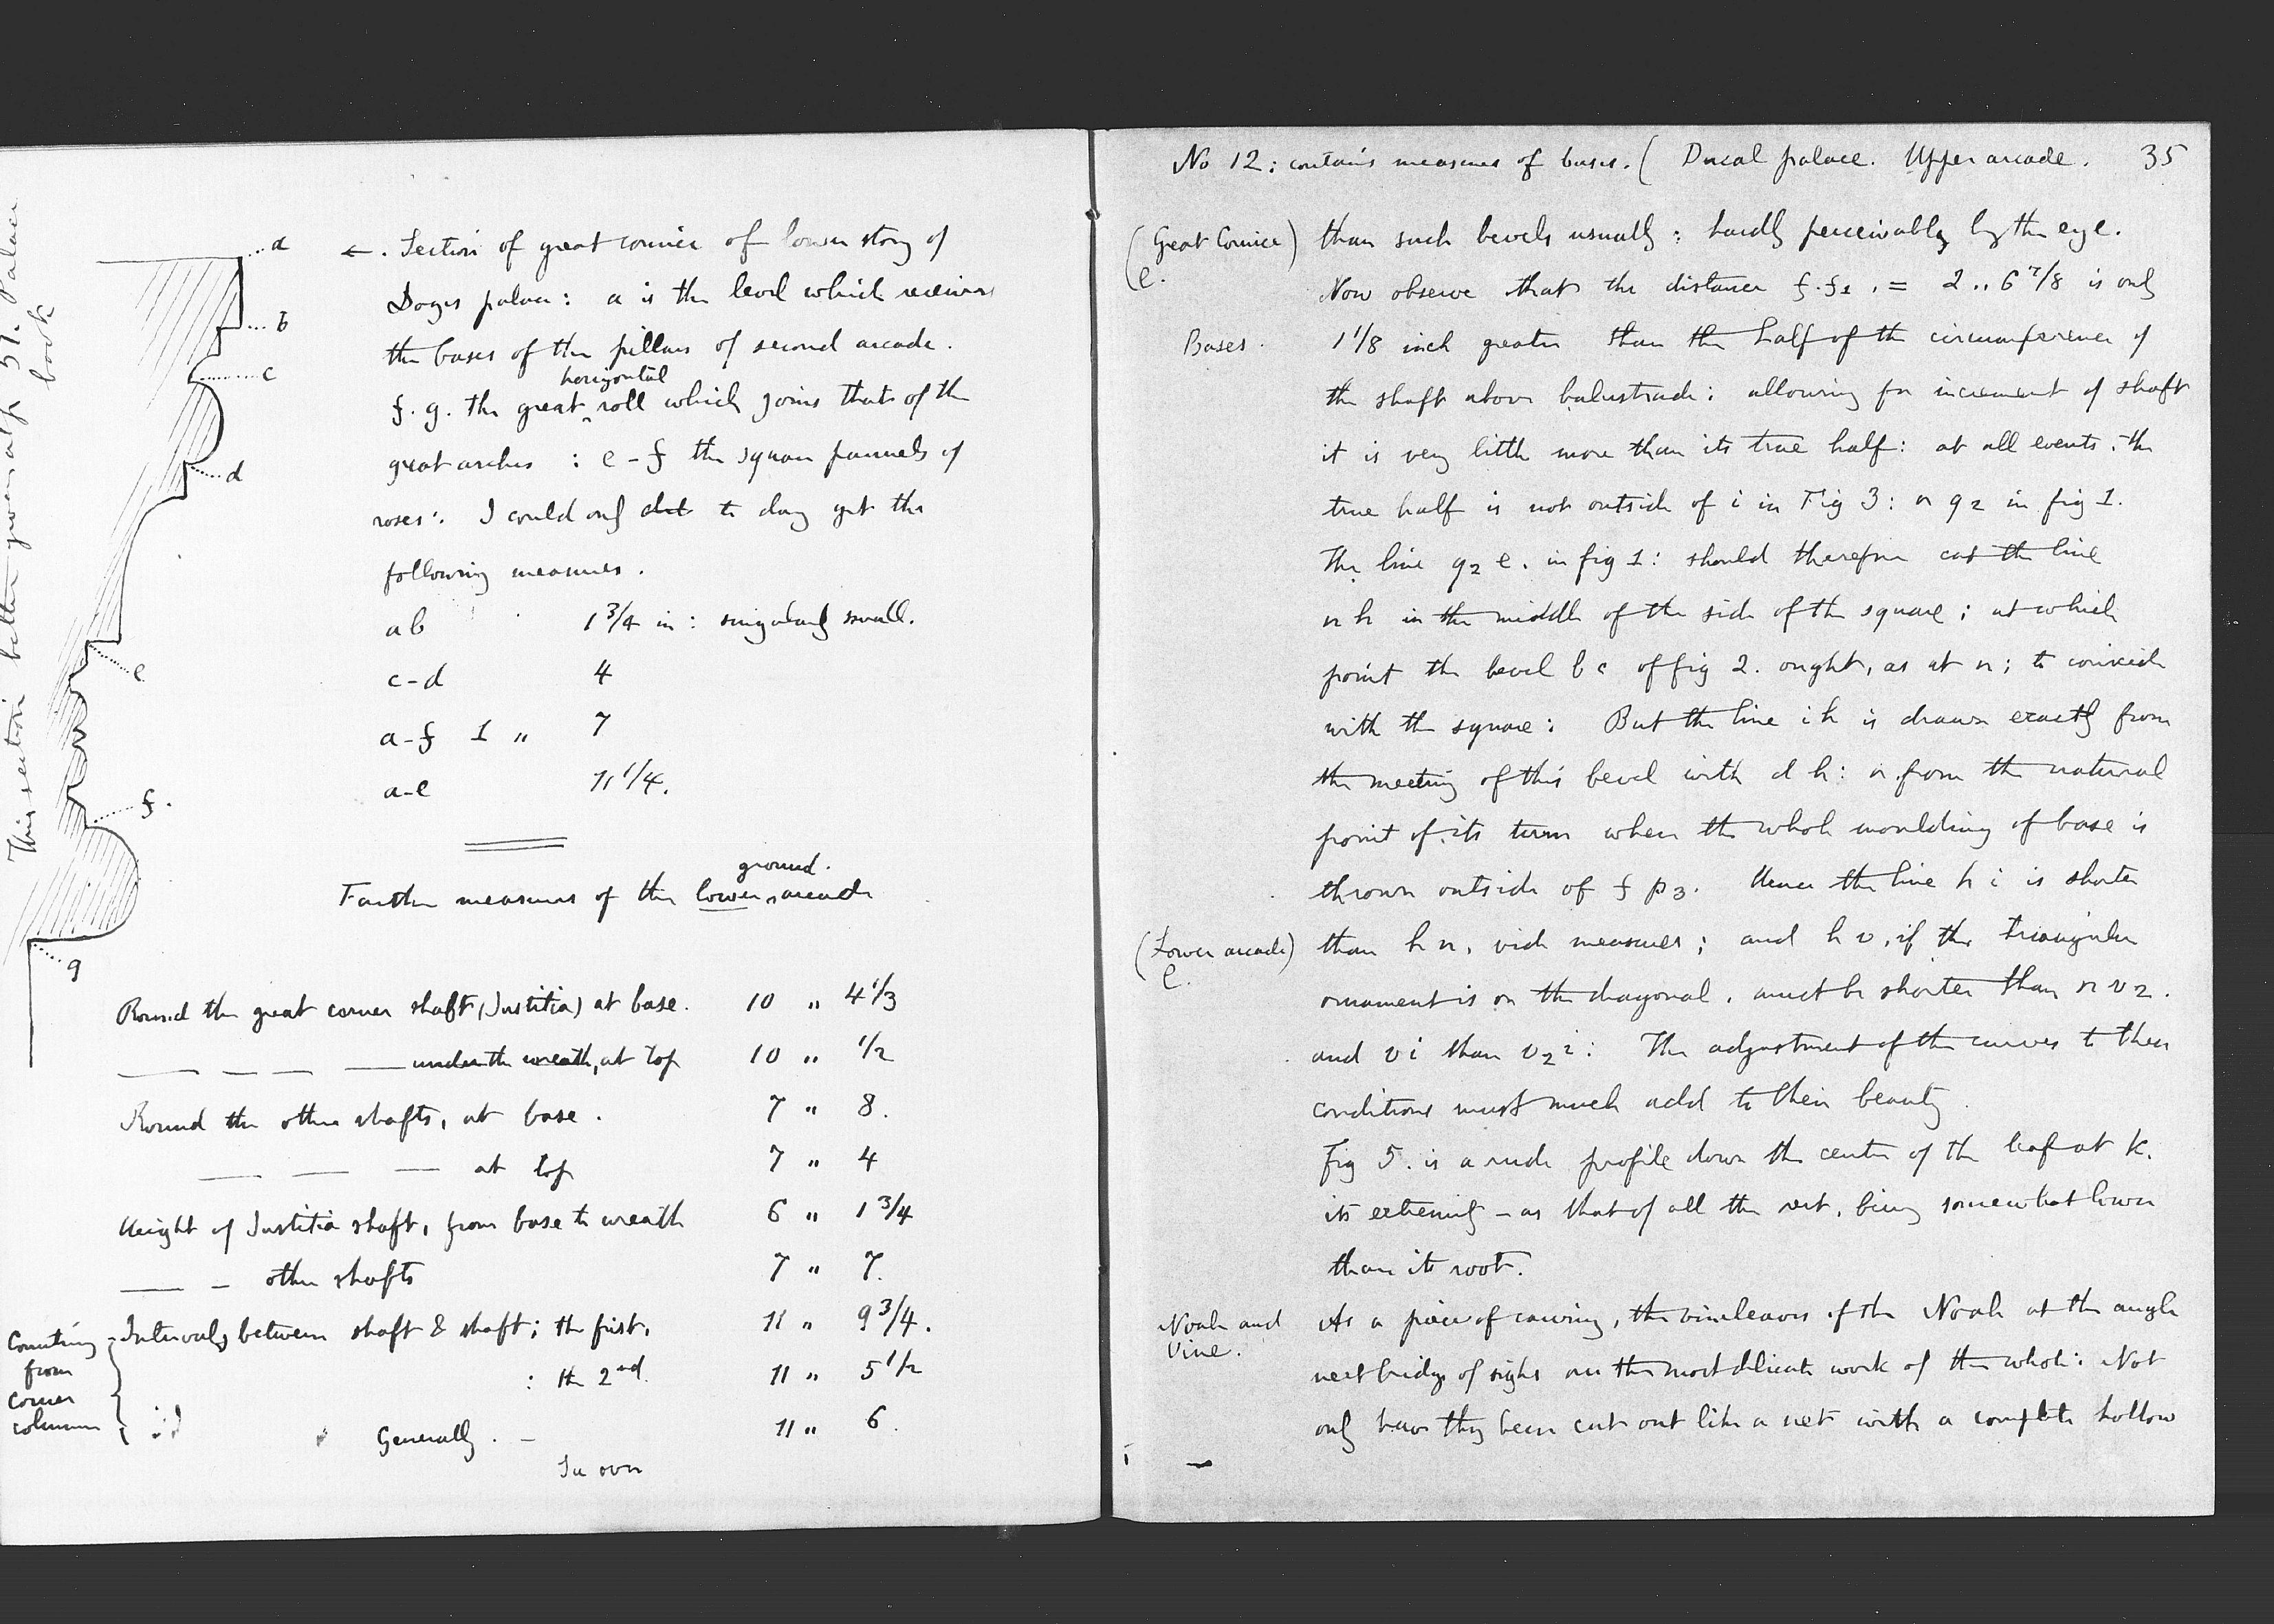 This section better given at p 37. Palace
book
a
b
c
d
e
f.
g
←. Section of great cornice of lower story of
Doges palace: a is the level which receives
the bases of the pillars of second arcade.
horizontal
f. g. the great ‸ roll which joins that of the
great arches : e - f the square pannels of
roses: I could only to day get the
following measures.
ab 1 3/4 in: singularly small.
c-d 4
a-f 1 " 7
a-e 11 1/4.
ground.
Farther measures of the lower ‸ arcade
Round the great corner shaft (Justitia) at base. 10 " 4 1/3
— — — — under the wreath, at top 10 " 1/2
Round the other shafts, at base. 7 " 8.
— — — at top 7 " 4
Height of Justitia shaft, from base to wreath 6 " 1 3/4
— – other shafts 7 " 7.
Counting
from
corner
column
Intervals between shaft & shaft; the first. 11 " 9 3/4.
: the 2nd. 11 " 5 1/2
Generally. – 11 " 6.
In over
No 12: contains measures of bases. ( Ducal palace. Upper arcade. 35
(Great Cornice) than such bevels usually: hardly perceivably by the eye.
(e.
Now observe that the distance f. f1. = 2.. 6 7/8 is only
Bases. 1 1/8 inch greater than the half of the circumference of
the shaft above balustrade: allowing for increment of shaft
it is very little more than its true half: at all events, the
true half is not outside of i in Fig 3: or q2 in fig 1.
The line q2 e. in fig 1: should therefore cut the line
n h in the middle of the side of the square; at which
point the bevel b c of fig 2. ought, as at n; to coincide
with the square: But the line i h is drawn exactly from
the meeting of this bevel with d h: or from the natural
point of its turn when the whole moulding of base is
thrown outside of f p3. Hence the line h i is shorter
(Lower arcade) than h n, vide measures; and h v, if the triangular
e.
ornament is on the diagonal, must be shorter than n v2.
and v i than v2 i: The adjustment of the curves to these
conditions must much add to their beauty.
Fig 5. is a rude profile down the center of the leaf at k.
its extremity – as that of all the rest, being somewhat lower
than its root.
Noah and
Vine.
As a piece of carving, the vineleaves of the Noah at the angle
next bridge of sighs are the most delicate work of the whole: Not
only have they been cut out like a net with a complete hollow